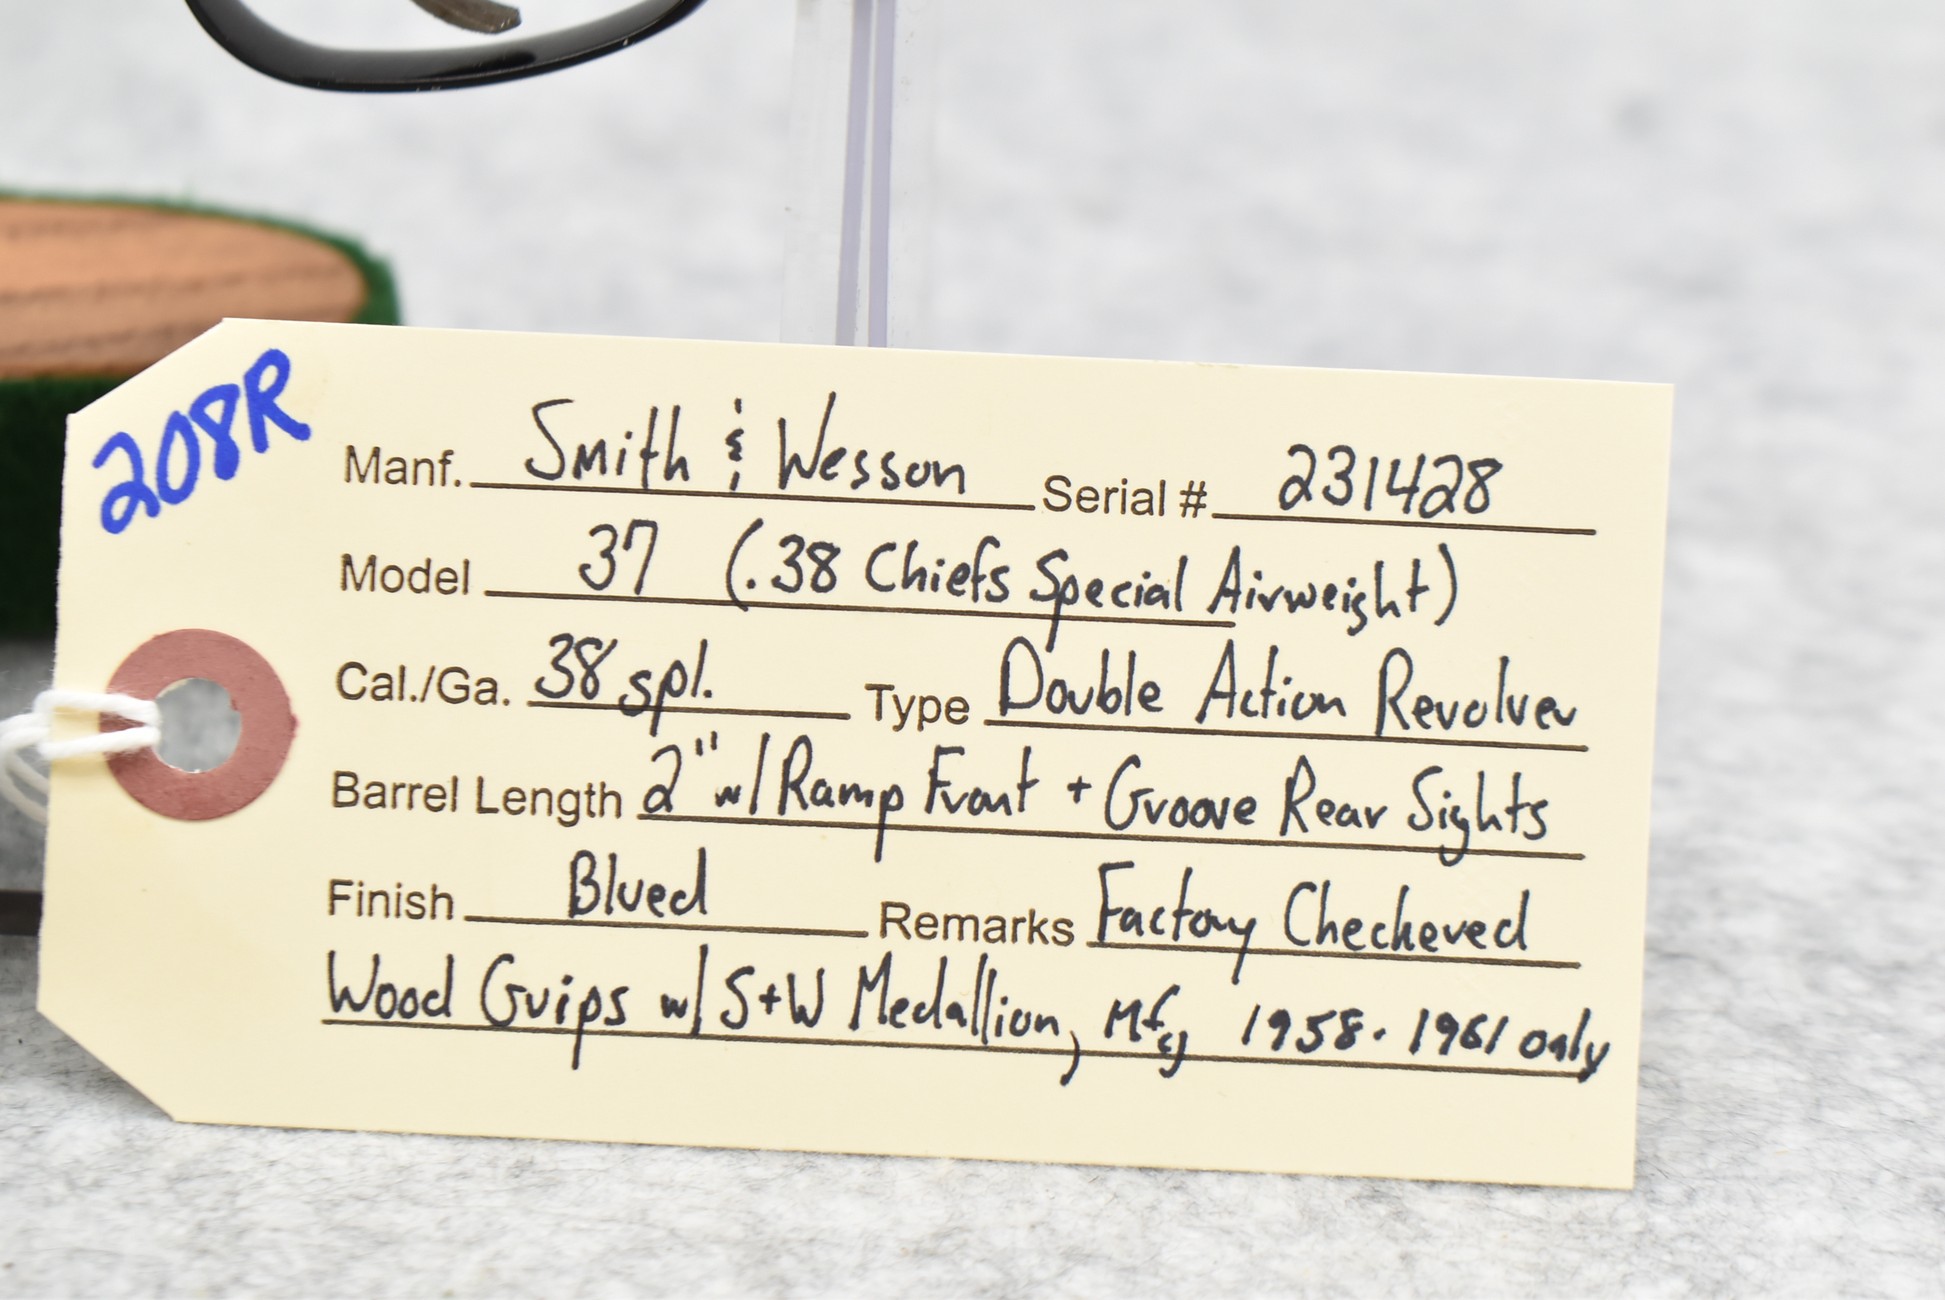 208R
Manf. Smith & Wesson Serial # 231428
Model 37 (.38 Chiefs Special Airweight)
Cal./Ga. 38 spl. Type Double Action Revolver
Barrel Length 2" w/ Ramp Front + Groove Rear Sights
Finish Blued Remarks Factory Checkered
Wood Grips w/ S+W Medallion, Mfg 1958-1961 only